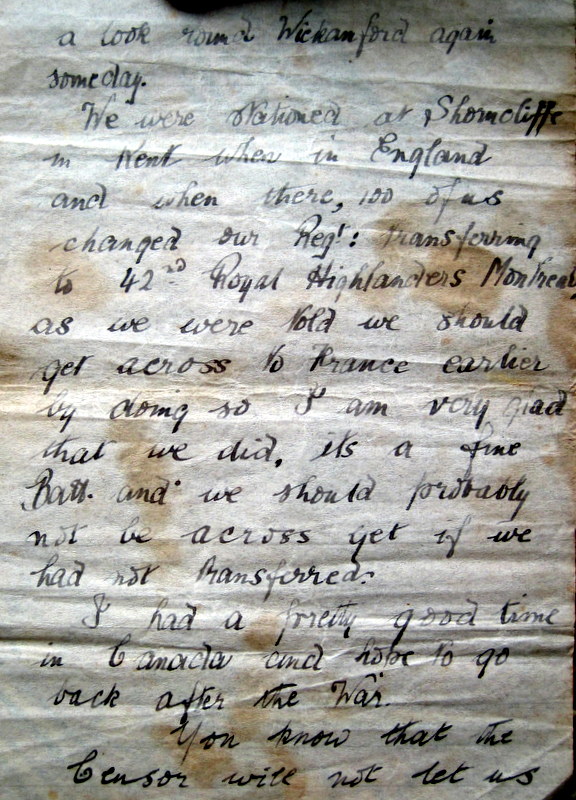 a look round Wickanford again
someday.
We were stationed at Shorncliffe
in Kent when in England
and when there, 100 of us
changed our Regt: transferring
to 42nd Royal Highlanders Montreal
as we were told we should
get across to France earlier
by doing so I am very glad
that we did, its a fine
Batt. and we should probably
not be across yet if we
had not transferred.
I had a pretty good time
in Canada and hope to go
back after the War.
You know that the
Censor will not let us